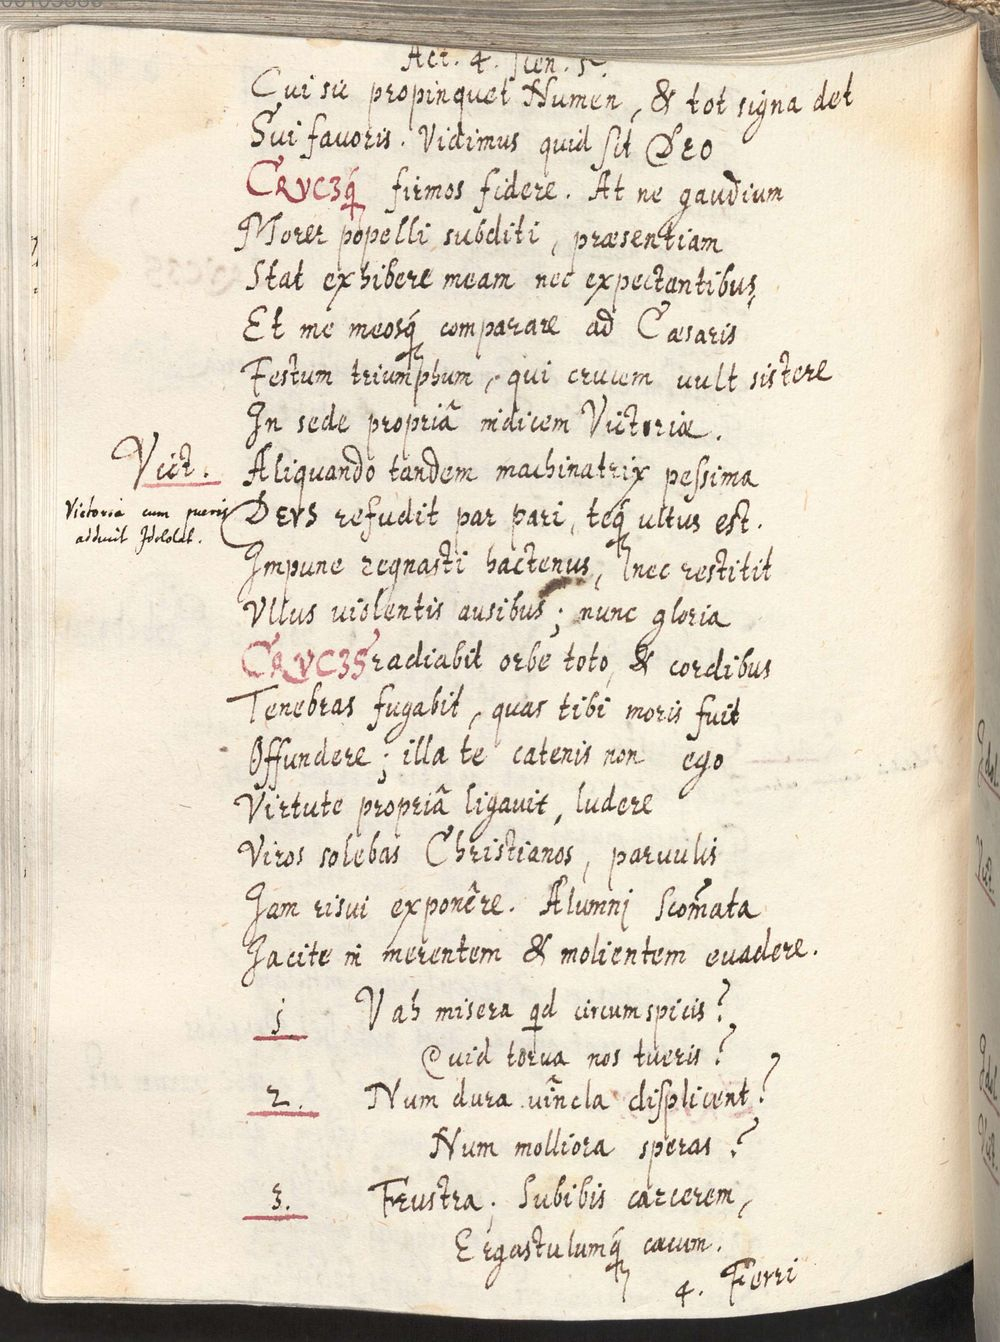 Act. 4. Scen. 5.
Cui sic propinquet Numen, & tot signa det
Sui favoris. Vidimus quid sit Deo
CRVCIq́ firmos fidere. At ne gaudium
Morer popelli subditi, præsentiam
Stat exhibere meam nec expectantibus,
Et me meosq́ comparare ad Cæsaris
Festum triumphum, qui crucem uult sistere
In sede propriâ indicem Victoriæ.
Vict. Aliquando tandem machinatrix pessima
Victoria cum pueris
adducit Idololat.
DEVS refudit par pari, teq́ ultus est.
Impune regnasti hactenus, nec restitit
Vllus violentis ausibus; nunc gloria
CRVCIS radiabit orbe toto, & cordibus
Tenebras fugabit, quas tibi moris fuit
Offundere; illa te catenis non ego
Virtute propriâ ligavit, ludere
Viros solebas Christianos, parvulis
Jam risui exponêre. Alumnj Scom̃ata
Jacite in merentem & molientem evadere.
1 Vah misera qd circumspicis?
Quid torva nos tueris?
2. Num dura vincla displicent?
Num molliora speras?
3. Frustra; Subibis carcerem,
Ergastulumq́ cæcum.
4. Ferri